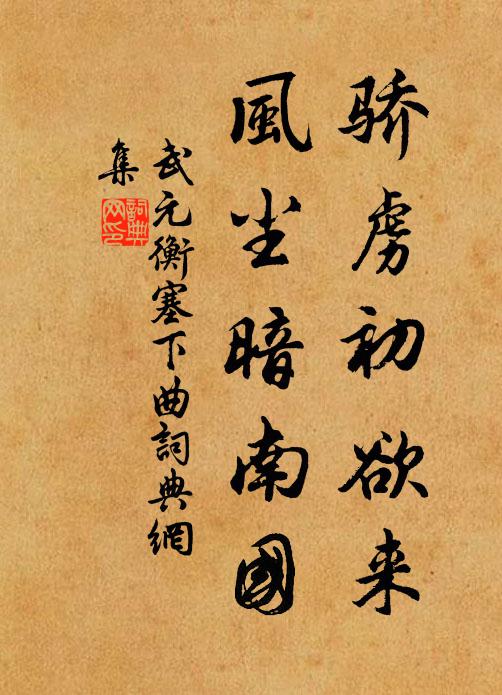 骄虏初欲来
風尘暗南國
武元衡塞下曲詞典網
集
詞典
网印